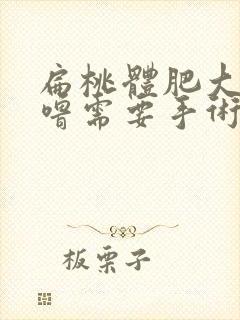 扁桃體肥大
需要手術
板栗子